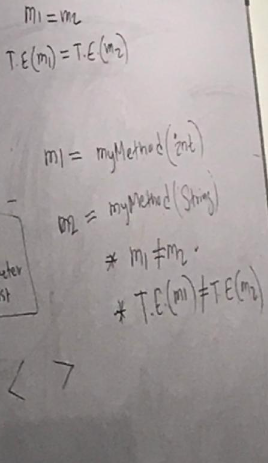 m1 = m2
T.E(m1) = T.E(m2)
m1 = myMethod(int)
m2 = myMethod(String)
* m1 ≠ m2.
* T.E.(m1) ≠ T.E(m2)
< >